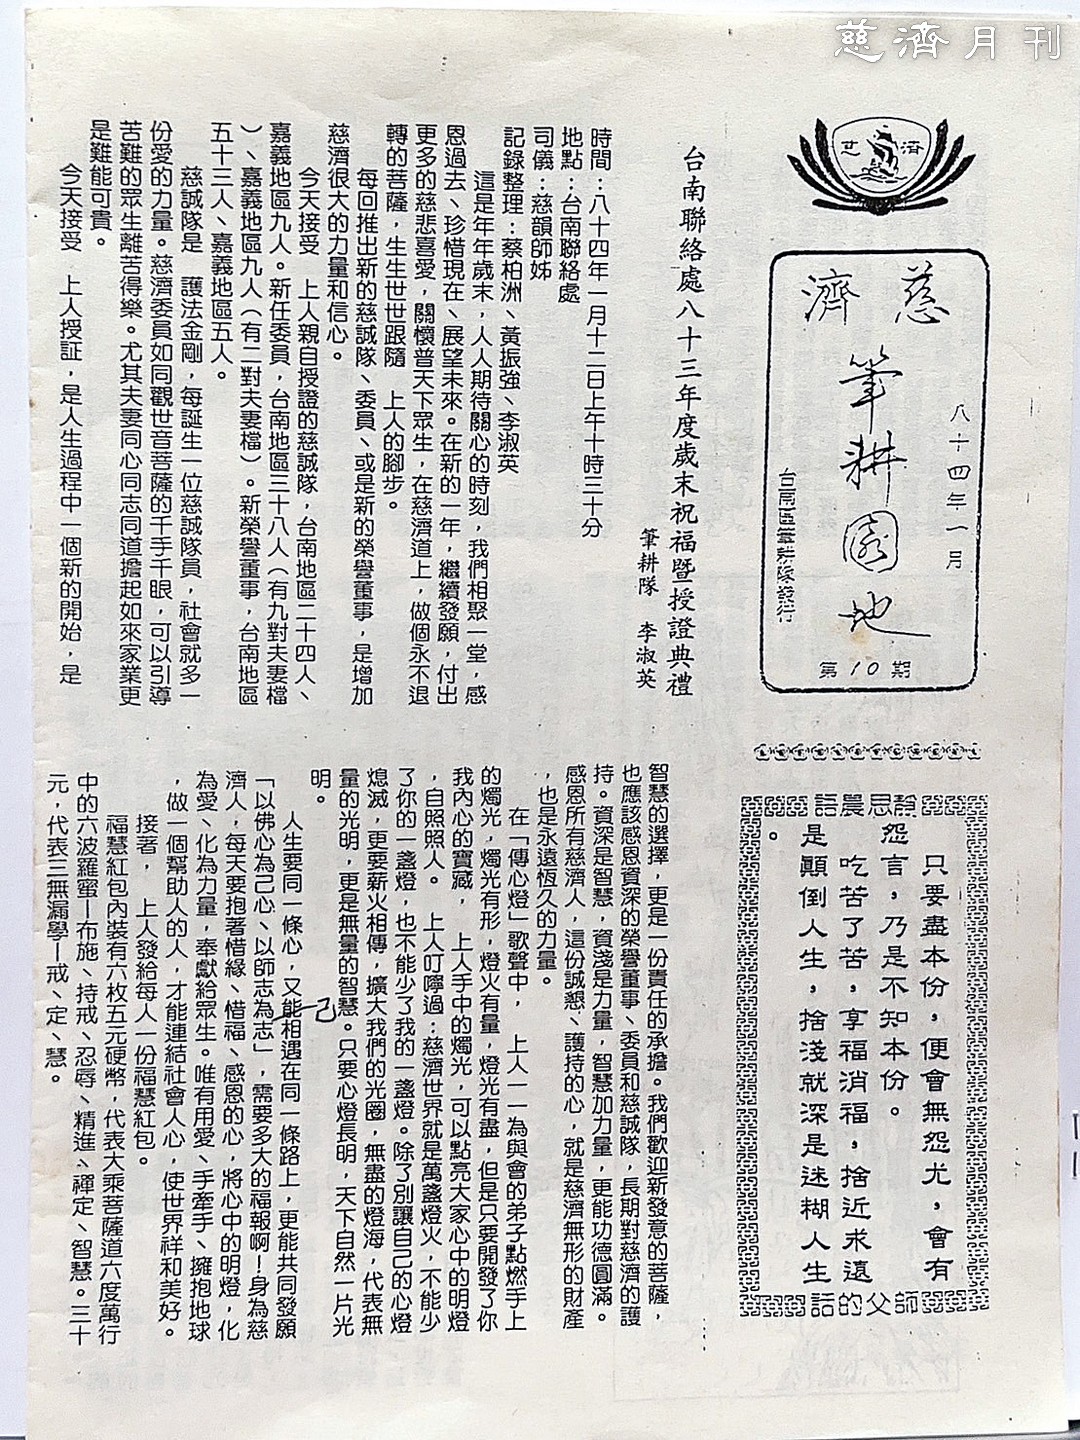 慈濟月刊
慈濟
慈濟
筆耕園地
八十四年一月
台南區筆耕隊發行
第10期
靜思晨語
只要盡本份，便會無怨尤，會有
怨言，乃是不知本份。
吃苦了苦，享福消福，捨近求遠
是顛倒人生，捨淺就深是迷糊人生
。
師父的話
台南聯絡處八十三年度歲末祝福暨授證典禮
筆耕隊　李淑英
時間：八十四年一月十二日上午十時三十分
地點：台南聯絡處
司儀：慈韻師姊
記錄整理：蔡柏洲、黃振強、李淑英
這是年年歲末，人人期待關心的時刻，我們相聚一堂，感
恩過去、珍惜現在、展望未來。在新的一年，繼續發願，付出
更多的慈悲喜愛，關懷普天下眾生，在慈濟道上，做個永不退
轉的菩薩，生生世世跟隨　上人的腳步。
每回推出新的慈誠隊、委員、或是新的榮譽董事，是增加
慈濟很大的力量和信心。
今天接受　上人親自授證的慈誠隊，台南地區二十四人、
嘉義地區九人。新任委員，台南地區三十八人（有九對夫妻檔
）、嘉義地區九人（有二對夫妻檔）。新榮譽董事，台南地區
五十三人、嘉義地區五人。
慈誠隊是　護法金剛，每誕生一位慈誠隊員，社會就多一
份愛的力量。慈濟委員如同觀世音菩薩的千手千眼，可以引導
苦難的眾生離苦得樂。尤其夫妻同心同志同道擔起如來家業更
是難能可貴。
今天接受　上人授証，是人生過程中一個新的開始，是
智慧的選擇，更是一份責任的承擔。我們歡迎新發意的菩薩，
也應該感恩資深的榮譽董事、委員和慈誠隊，長期對慈濟的護
持。資深是智慧，資淺是力量，智慧加力量，更能功德圓滿。
感恩所有慈濟人，這份誠懇、護持的心，就是慈濟無形的財產
，也是永遠恆久的力量。
在「傳心燈」歌聲中，　上人一一為與會的弟子點燃手上
的燭光，燭光有形，燈火有量，燈光有盡，但是只要開發了你
我內心的寶藏，　上人手中的燭光，可以點亮大家心中的明燈
，自照照人。　上人叮嚀過：慈濟世界就是萬盞燈火，不能少
了你的一盞燈，也不能少了我的一盞燈。除了別讓自己的心燈
熄滅，更要薪火相傳，擴大我們的光圈，無盡的燈海，代表無
量的光明，更是無量的智慧。只要心燈長明，天下自然一片光
明。
己
人生要同一條心，又能相遇在同一條路上，更能共同發願
「以佛心為己心、以師志為志」，需要多大的福報啊！身為慈
濟人，每天要抱著惜緣、惜福、感恩的心，將心中的明燈，化
為愛、化為力量，奉獻給眾生。唯有用愛、手牽手、擁抱地球
，做一個幫助人的人，才能連結社會人心，使世界祥和美好。
接著，　上人發給每人一份福慧紅包。
福慧紅包內裝有六枚五元硬幣，代表大乘菩薩道六度萬行
中的六波羅蜜—布施、持戒、忍辱、精進、禪定、智慧。三十
元，代表三無漏學—戒、定、慧。